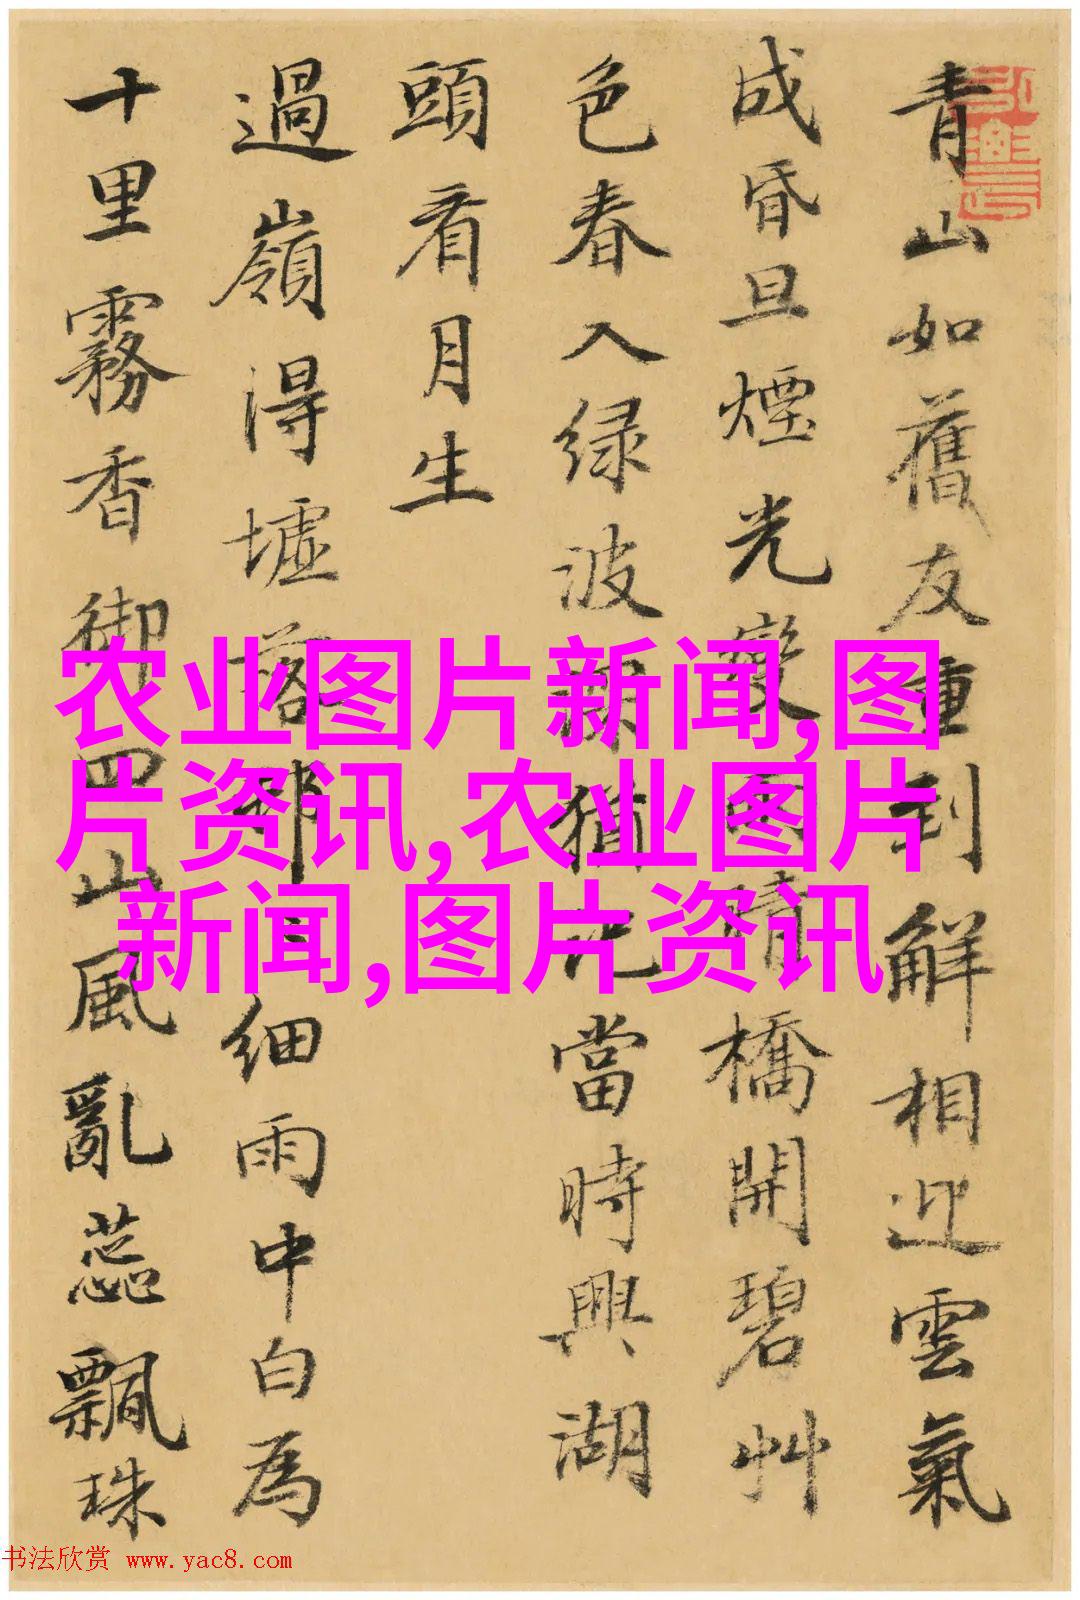 青山如舊友重到解相迎雲氣
成昏旦煙光變雨晴橋開碧艸
色春入绿波聲猶記當時興湖
頭看月生
過嶺得墟落邨〻细雨中白為
十里霧香御四山風亂蕊飄珠
农业图片新闻,图
片资讯,农业图片
新闻,图片资讯
书法欣赏 www.yac8.com